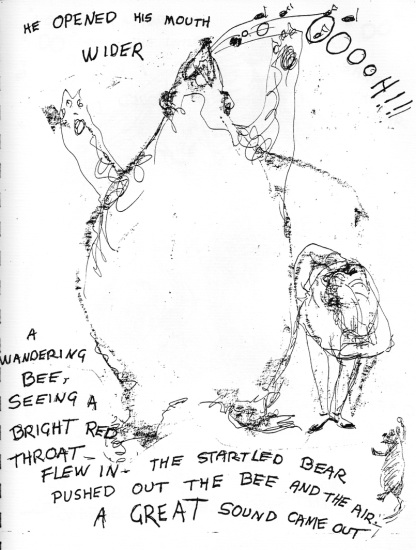 HE OPENED HIS MOUTH
WIDER
OOOOH!!!
A
WANDERING
BEE,
SEEING A
BRIGHT RED
THROAT—
FLEW IN— THE STARTLED BEAR
PUSHED OUT THE BEE AND THE AIR—
A GREAT SOUND CAME OUT